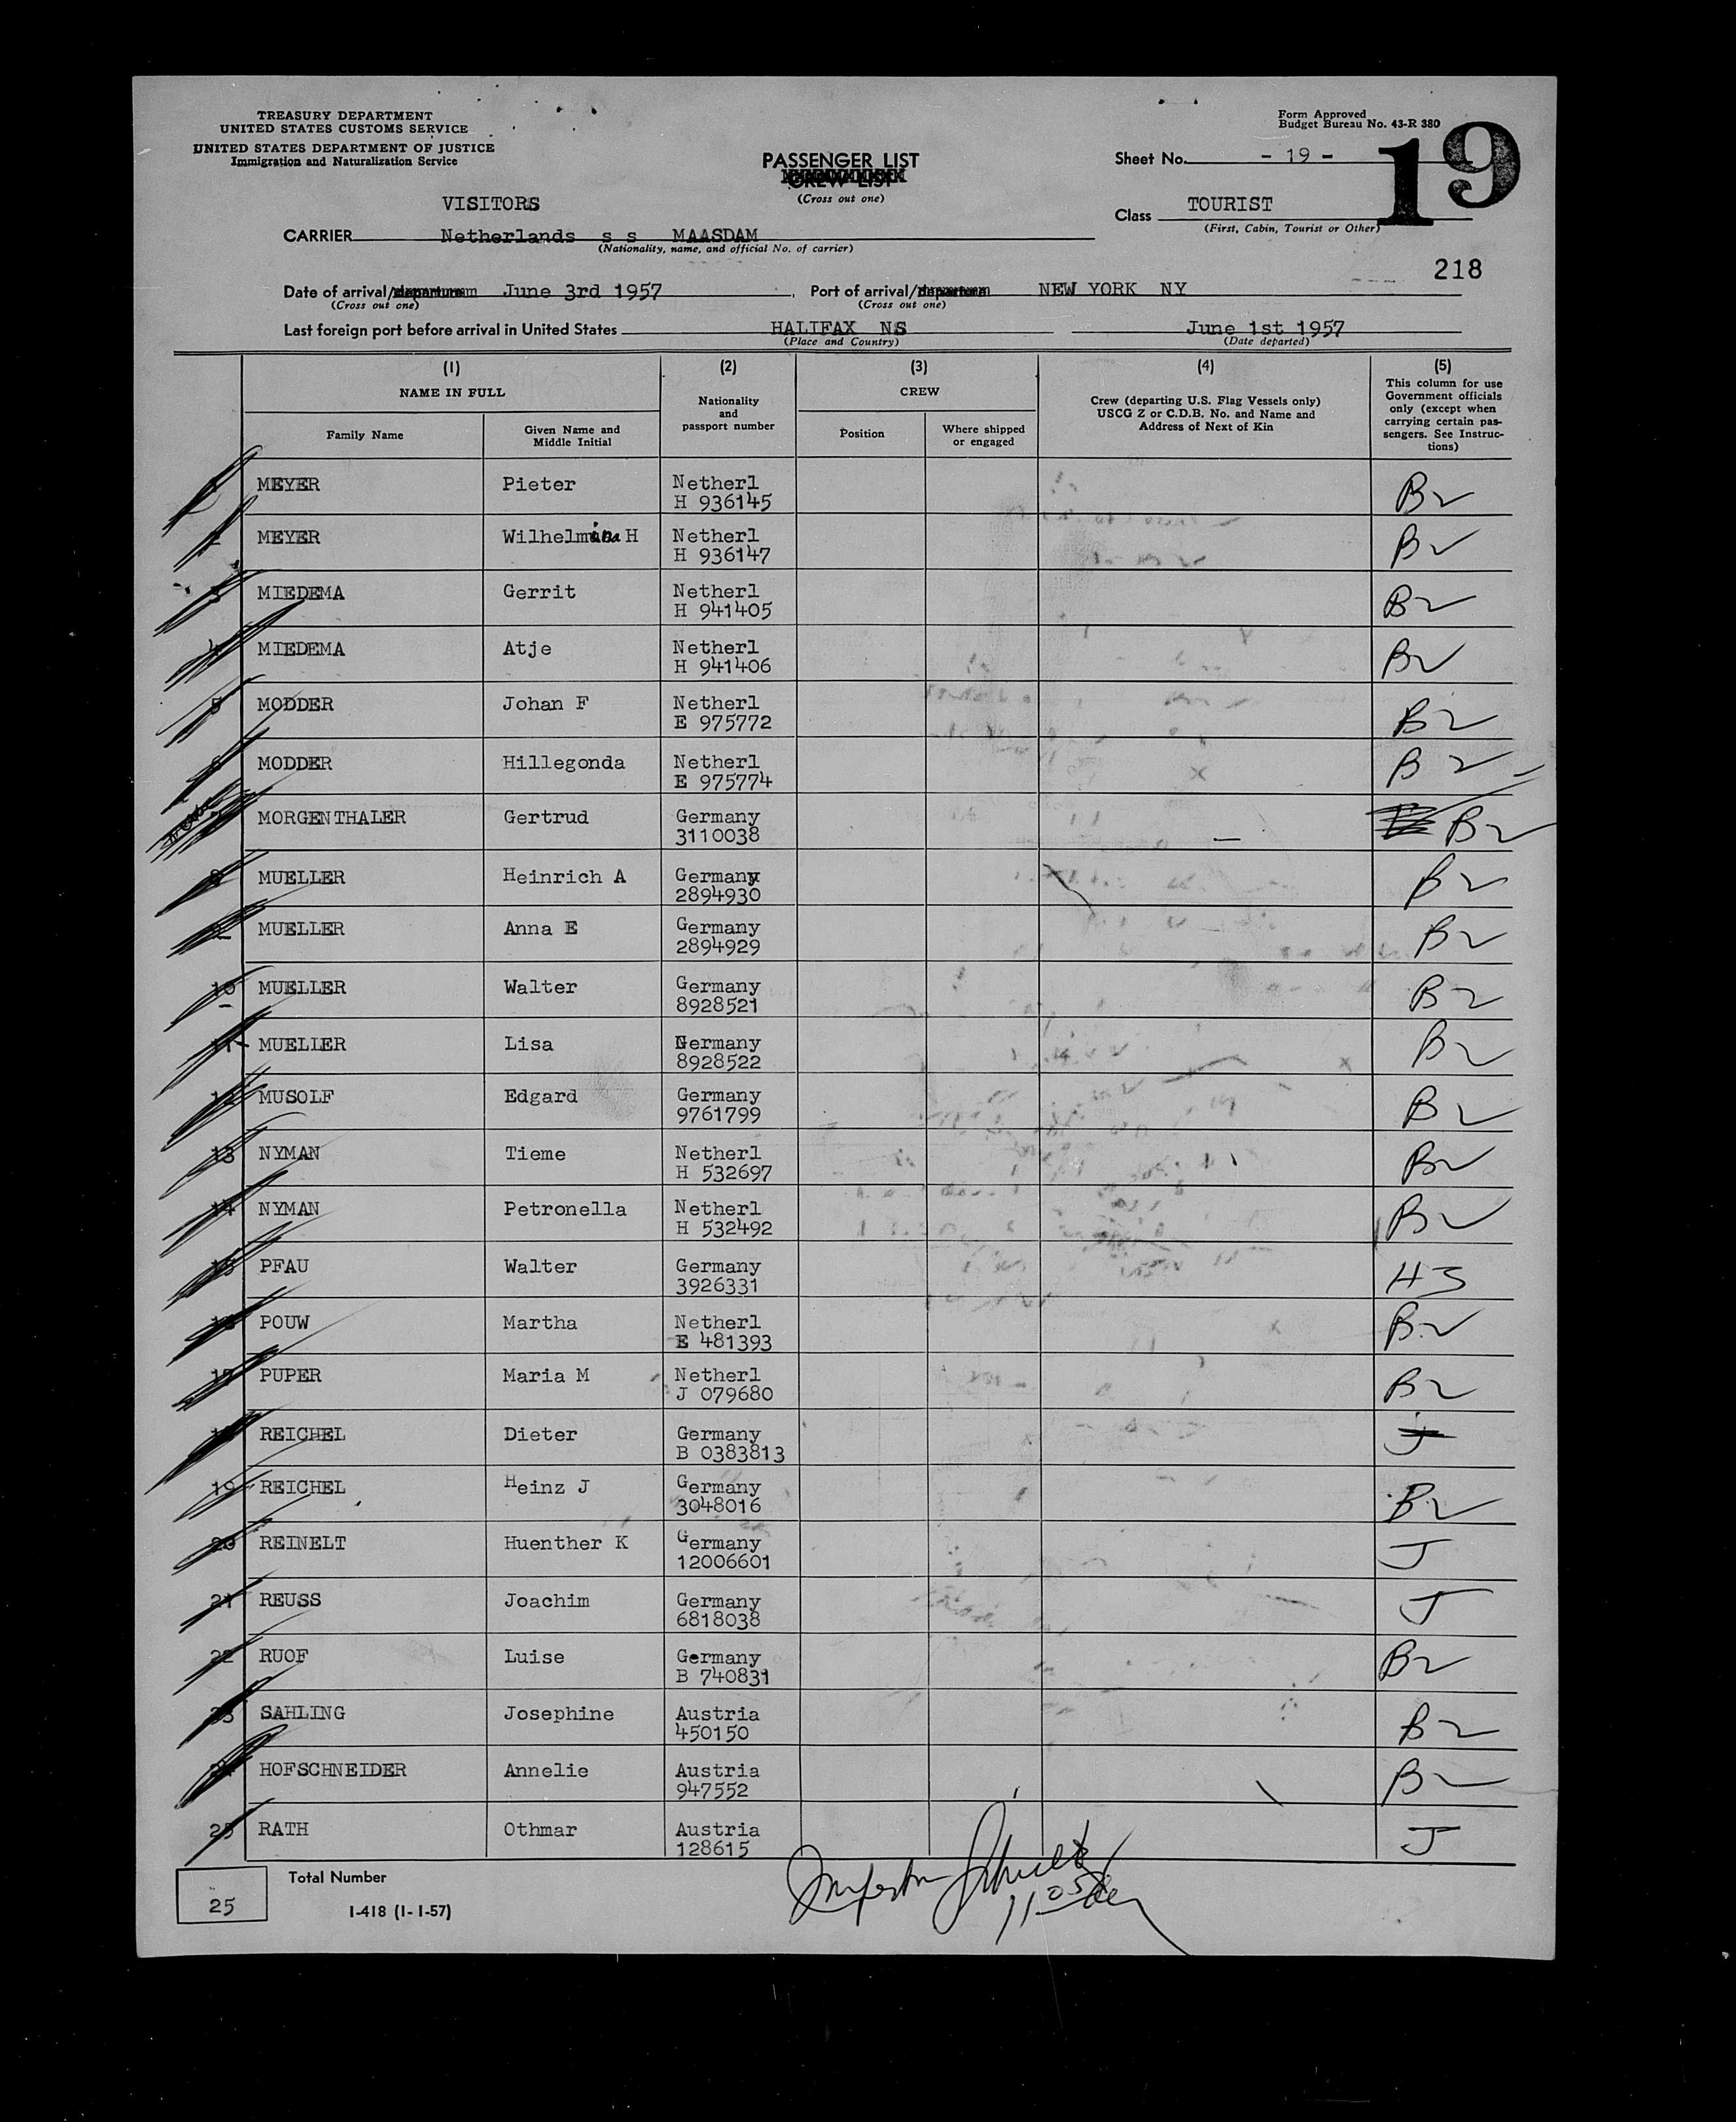 TREASURY DEPARTMENT
UNITED STATES CUSTOMS SERVICE
UNITED STATES DEPARTMENT OF JUSTICE
Immigration and Naturalization Service
PASSENGER LIST
CREW LIST
(Cross out one)
Form Approved
Budget Bureau No. 43-R 380
Sheet No. - 19 -
19
VISITORS
Class TOURIST
(First, Cabin, Tourist or Other)
CARRIER Netherlands s s MAASDAM
(Nationality, name, and official No. of carrier)
218
Date of arrival/departure June 3rd 1957, Port of arrival/departure NEW YORK NY
(Cross out one) (Cross out one)
Last foreign port before arrival in United States HALIFAX NS June 1st 1957
(Place and Country) (Date departed)
(1) (2) (3) (4) (5)
NAME IN FULL
Family Name
Given Name and
Middle Initial
Nationality
and
passport number
CREW
Position
Where shipped
or engaged
Crew (departing U.S. Flag Vessels only)
USCG Z or C.D.B. No. and Name and
Address of Next of Kin
This column for use
Government officials
only (except when
carrying certain pas-
sengers. See Instruc-
tions)
1 MEYER Pieter Netherl B2
H 936145
2 MEYER Wilhelmina H Netherl B2
H 936147
3 MIEDEMA Gerrit Netherl B2
H 941405
4 MIEDEMA Atje Netherl B2
H 941406
5 MODDER Johan F Netherl B2
E 975772
6 MODDER Hillegonda Netherl B2
E 975774
7 MORGENTHALER Gertrud Germany B2
3110038
8 MUELLER Heinrich A Germany B2
2894930
9 MUELLER Anna E Germany B2
2894929
10 MUELLER Walter Germany B2
8928521
11 MUELLER Lisa Germany B2
8928522
12 MUSOLF Edgard Germany B2
9761799
13 NYMAN Tieme Netherl B2
H 532697
14 NYMAN Petronella Netherl B2
H 532492
15 PFAU Walter Germany H3
3926331
16 POUW Martha Netherl B2
E 481393
17 PUPER Maria M Netherl B2
J 079680
18 REICHEL Dieter Germany J
B 0383813
19 REICHEL Heinz J Germany B2
3048016
20 REINELT Huenther K Germany J
12006601
21 REUSS Joachim Germany J
6818038
22 RUOF Luise Germany B2
B 740831
23 SAHLING Josephine Austria B2
450150
24 HOFSCHNEIDER Annelie Austria B2
947552
25 RATH Othmar Austria J
128615
Total Number
25
I-418 (1-1-57)